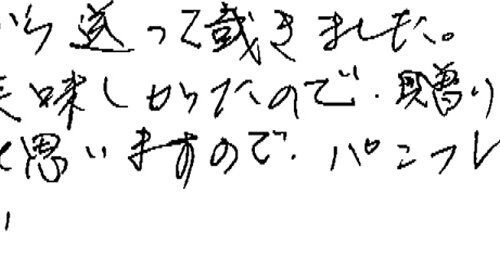 ら送って戴きました。
美味しかったので、贈り
と思いますので、パンフレ